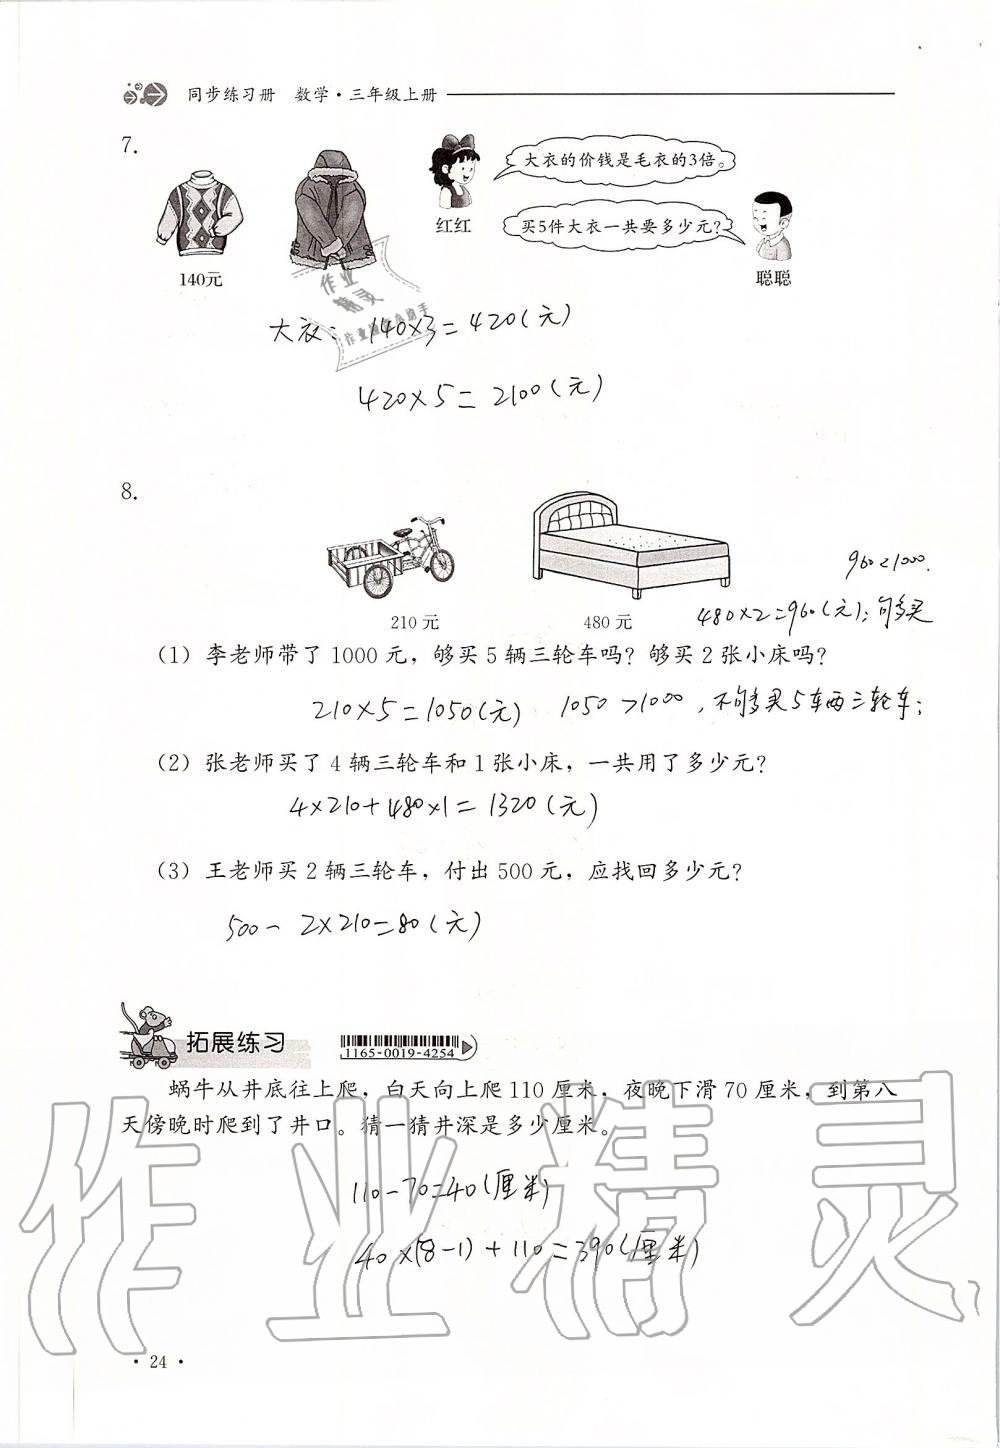 同步练习册 数学·三年级上册
7.
大衣的价钱是毛衣的3倍。
红红
买5件大衣一共要多少元?
聪聪
140元
作业
精灵
大衣: 140×3=420(元)
420×5=2100(元)
8.
960<1000.
210元 480元
480×2=960(元); 够买
(1) 李老师带了1000元，够买5辆三轮车吗？够买2张小床吗？
210×5=1050(元) 1050>1000, 不够买5车两三轮车;
(2) 张老师买了4辆三轮车和1张小床，一共用了多少元？
4×210+480×1=1320(元)
(3) 王老师买2辆三轮车，付出500元，应找回多少元？
500-2×210=80(元)
拓展练习
1165-0019-4254
蜗牛从井底往上爬，白天向上爬110厘米，夜晚下滑70厘米，到第八
天傍晚时爬到了井口。猜一猜井深是多少厘米。
110-70=40(厘米)
40×(8-1)+110=390(厘米)
作业精灵
·24·